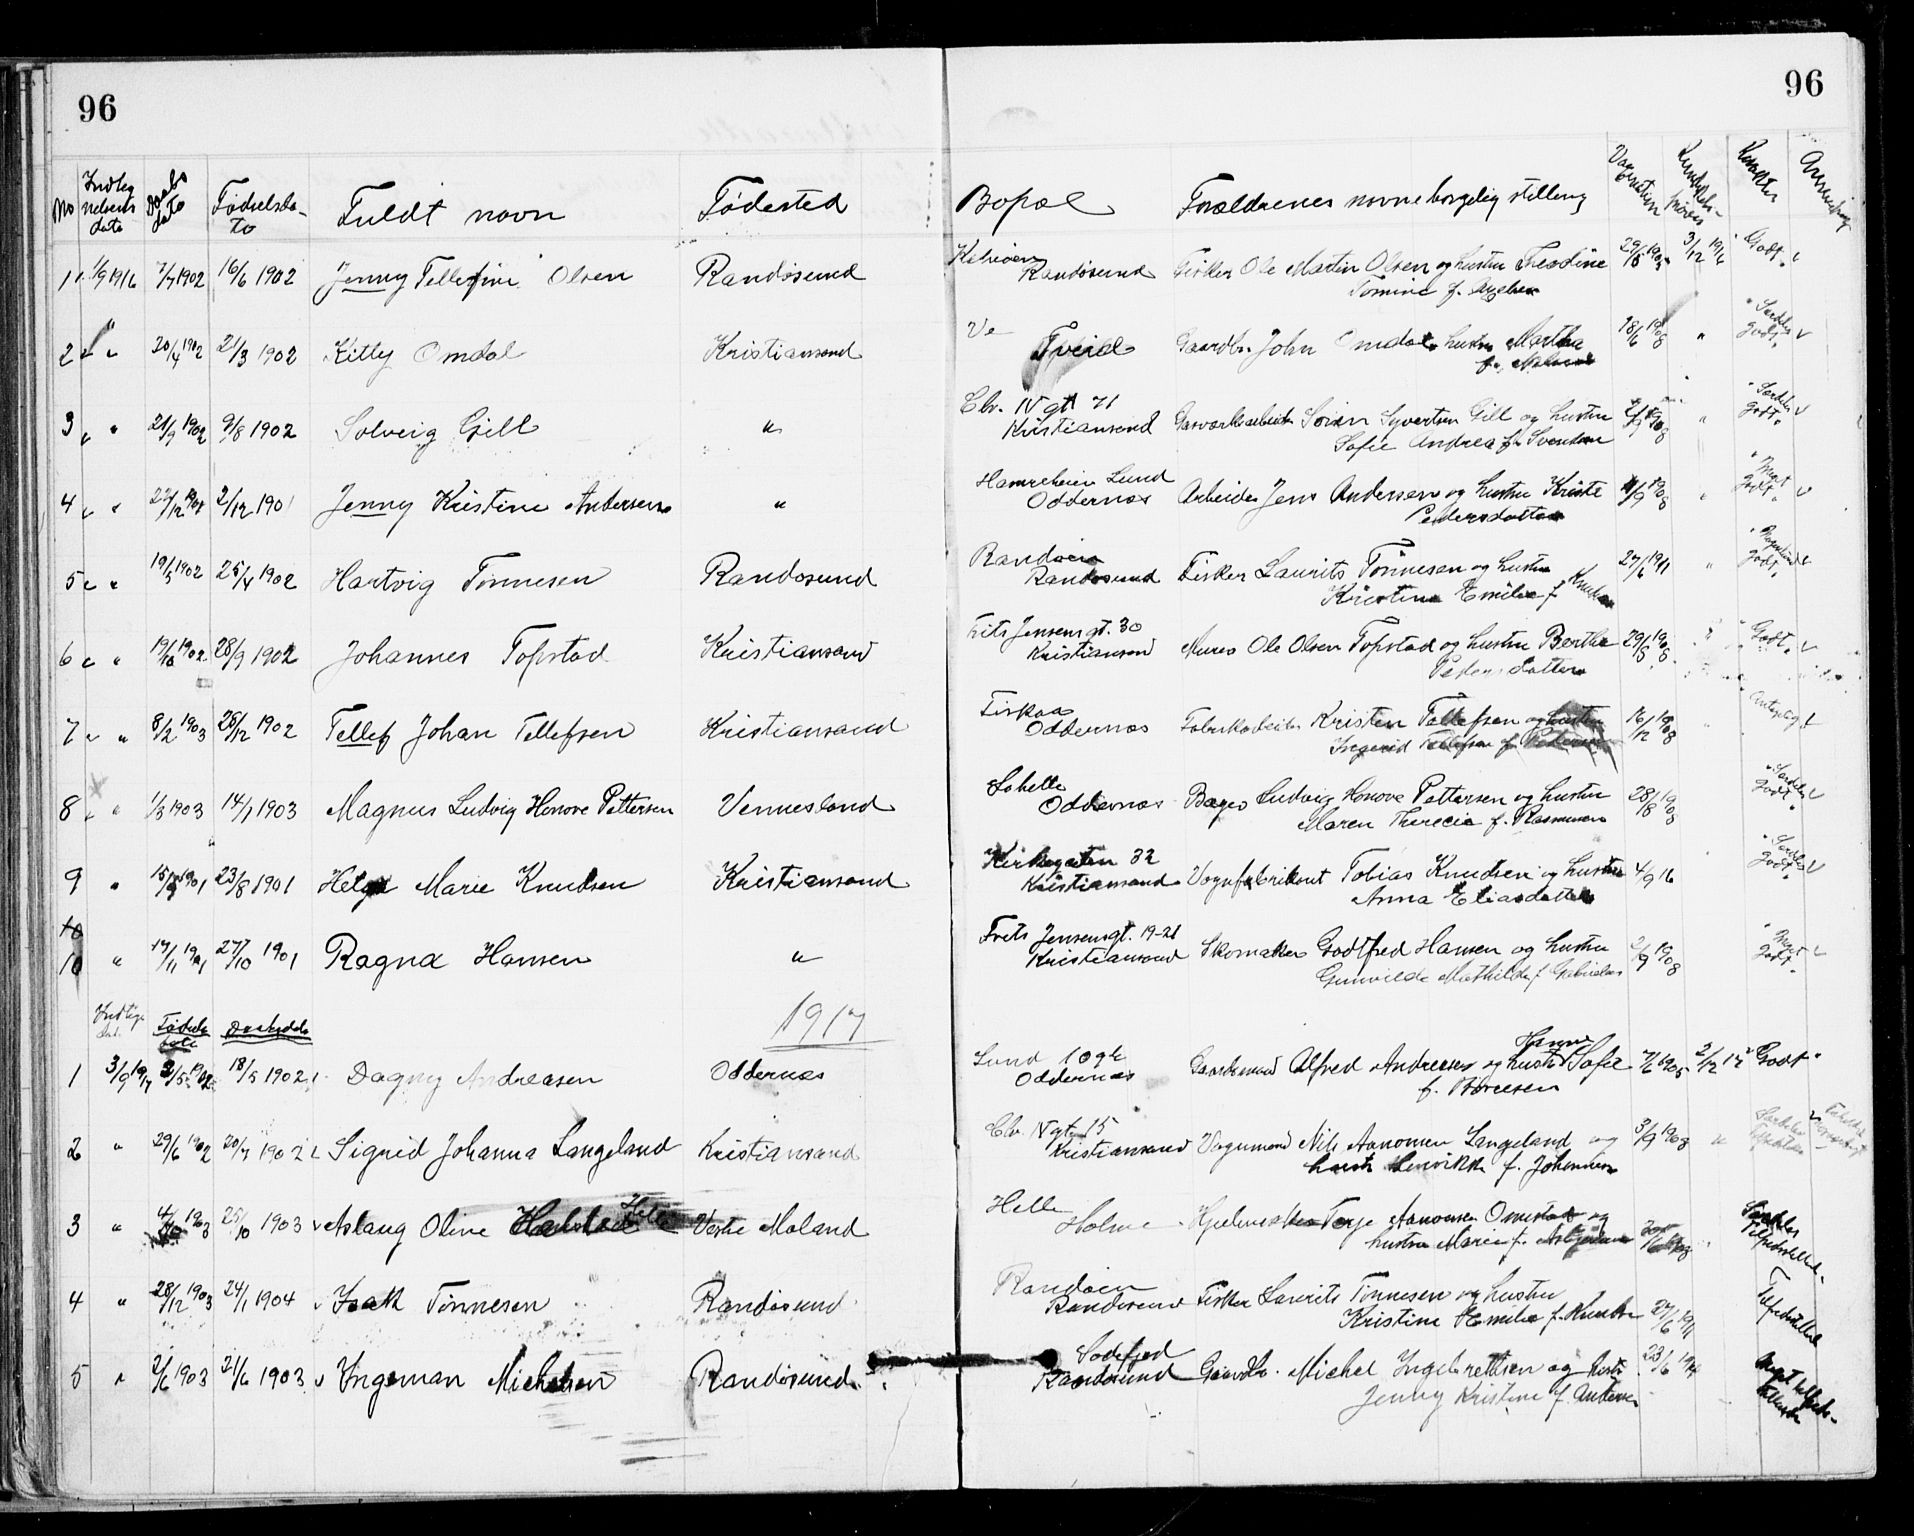 96
96
No Indlegnelsens dato Daabs dato Fødselsdato Fuldt navn Fødested
Bopæl Forældrenes navne borgelig stilling Vaccination Kundskabsprøven Karakter
1 1/9 1916 7/7 1902 16/6 1902 Jenny Tellefine Olsen Randøsund
Randøsund Fisker Ole Martin Olsen og hustru Theodine 3/12 1916 Godt
Tomine f.
2 " 20/4 1902 21/3 1902 Kitty Omdal Kristiansand
Ve
Tveid Gaardbr. John Omdal hustru Martha 18/6 1908 " Særdeles Godt
3 " 21/9 1902 9/8 1902 Solveig Gill "
Elv. IV gt 71
Kristiansand Gasværkarbeider Søren Syvertsen Gill og hustru " Særdeles Godt
Sofie Andrea f. Svendsen
4 " 22/12 1901 2/12 1901 Jenny Kristine Andersen "
Hamreheien Lund
Oddernes Arbeider Jens Andersen og hustru Kriste " Meget Godt
Pedersdatter
5 " 19/5 1902 25/4 1902 Hartvig Tønnesen Randøsund
Randøen
Randøsund Fisker Laurits Tønnesen og hustru 27/6 1911 " Godt
Kristine Emilie f Knudsen
6 " 19/10 1902 28/9 1902 Johannes Topstad Kristiansand
Frits Jensensgt. 30
Kristiansand Murer Ole Olsen Topstad og hustru Berthe 29/8 1908 " Godt
Pedersdatter
7 " 8/2 1903 25/12 1902 Tellef Johan Tellefsen Kristiansand
Fiskaa
Oddernes Fabrikarbeider Kristen Tellefsen og hustru 16/12 1908
Ingerid Tellefsen f. Pedersen
8 " 1/3 1903 14/1 1903 Magnus Ludvig Honore Pettersen Vennesland
Oddernes Bager Ludvig Honore Pettersen og hustru 28/8 1908 Særdeles Godt
Maren Therecie f. Rasmussen
9 " 15/9 1901 23/8 1901 Helga Marie Knudsen Kristiansand
Kirkegaten 32
Kristiansand Vognfabrikant Tobias Knudsen og hustru 4/9 16 Særdeles Godt
Anna Eliasdatter
10
10 " 17/11 1901 27/10 1901 Ragna Hansen "
Frits Jensensgt. 19-21
Kristiansand Skomaker Godtfred Hansen og hustru 2/9 1908 Meget Godt
Gunvilde Mathilde f. Gabrielsen
Fødsels dato Daabsdato 1917
1 3/9 1917 3/5 1902 18/5 1902 Dagny Andreasen Oddernes
Lund
Oddernes Gaardsmand Alfred Andreasen og hustru Hanne Sofie 7/6 1905 2/12 17 Godt
2 " 29/6 1902 20/7 1902 Sigrid Johanna Langeland Kristiansand
Elv. 15
Kristiansand Vognmand Nils Aanonsen Langeland og 3/9 1908 "
hustru f. Johannessen
3 " 1903 25/10 1903 Aslaug Olive Helle Vestre Moland
Helle
Holme Terje Aanonsen Omestad og Særdeles Tilfredsstillende
hustru Marie f.
4 " 28/12 1903 24/1 1904 Isak Tønnesen Randøsund
Randøen
Randøsund Fisker Laurits Tønnesen og hustru 27/6 1911 Tilfredsstillende
Kristine Emilie f. Knudsen
5 " 2/6 1903 21/6 1903 Ingeman Michelsen Randøsund
Randøsund Gaardbr. Michel Ingebretsen og hustru 23/6 1914 Meget tilfredsstillende
Jenny Kristine f Andersen